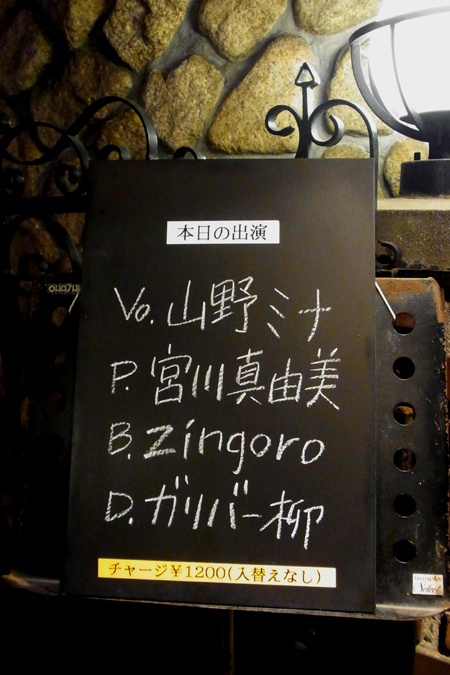 本日の出演
Vo. 山野ミナ
P. 宮川真由美
B. Zingoro
D. ガリバー柳
チャージ￥1200(入替えなし)
Select